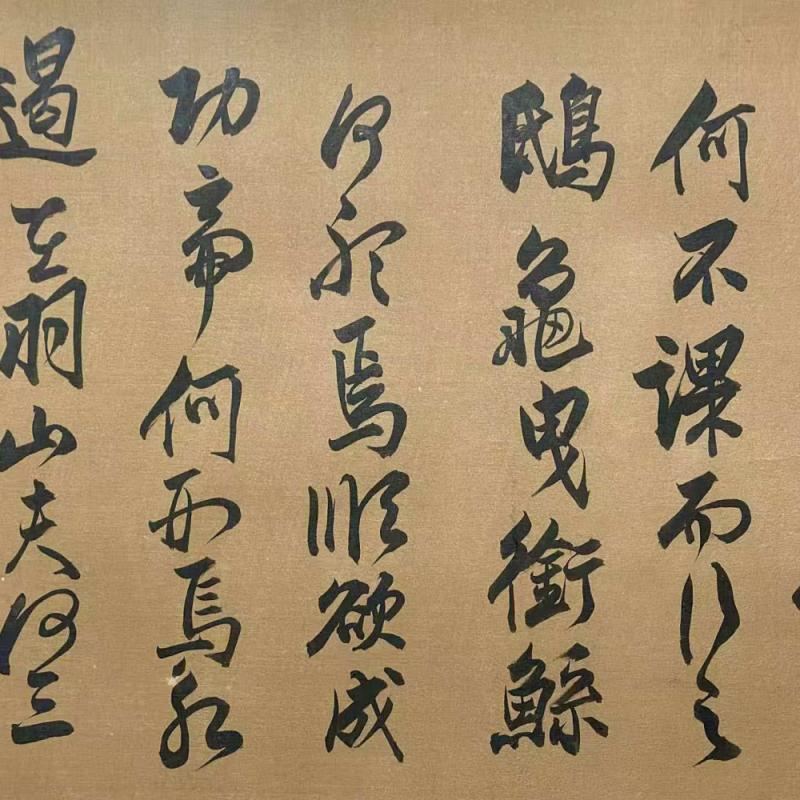 何不課而行之
鴟龜曳銜鯀
何聽焉順欲成
功帝何刑焉永
遏在羽山夫何三